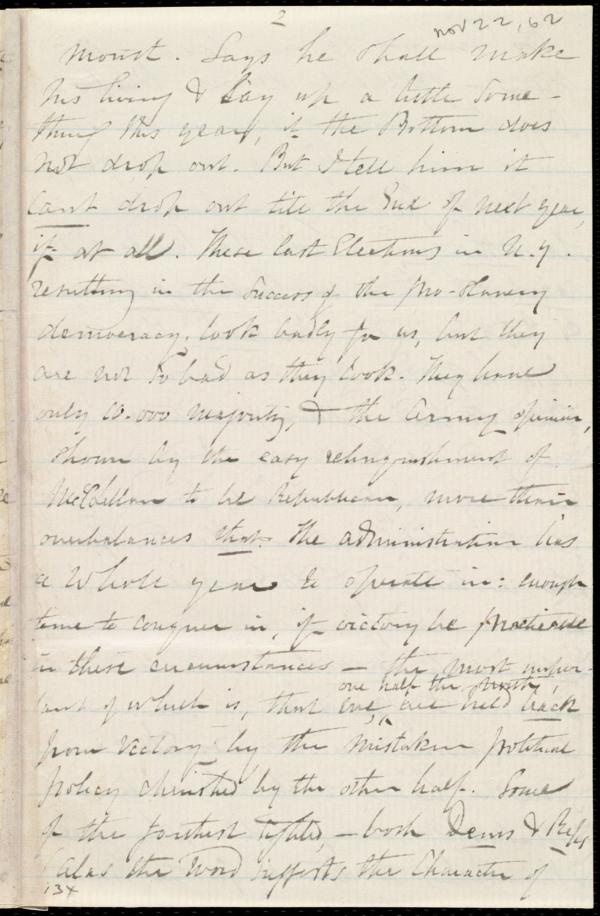 2
Nov 22, 62
mount. Says he shall make
his living & lay up a little some-
thing this year, if the Bottom does
not drop out. But I tell him it
cant drop out till the End of next year,
if at all. These last Elections in N.Y.
resulting in the success of the pro-slavery
democracy, look badly for us, but they
are not so bad as they look. They have
only 10.000 majority, & the Army opinion,
shown by the easy relinquishment of
McClellan to be Republican, more than
overbalances that. The administration has
a whole year to operate in: enough
time to conquer in, if victory be practicable
in these circumstances — the most impor-
tant of which is, that
one half the North,
are held back
from victory by the mistaken political
policy cherished by the other half. Some
of the forthest sighted, — both Dems & Reps
(alas the word suggests the character of
13x